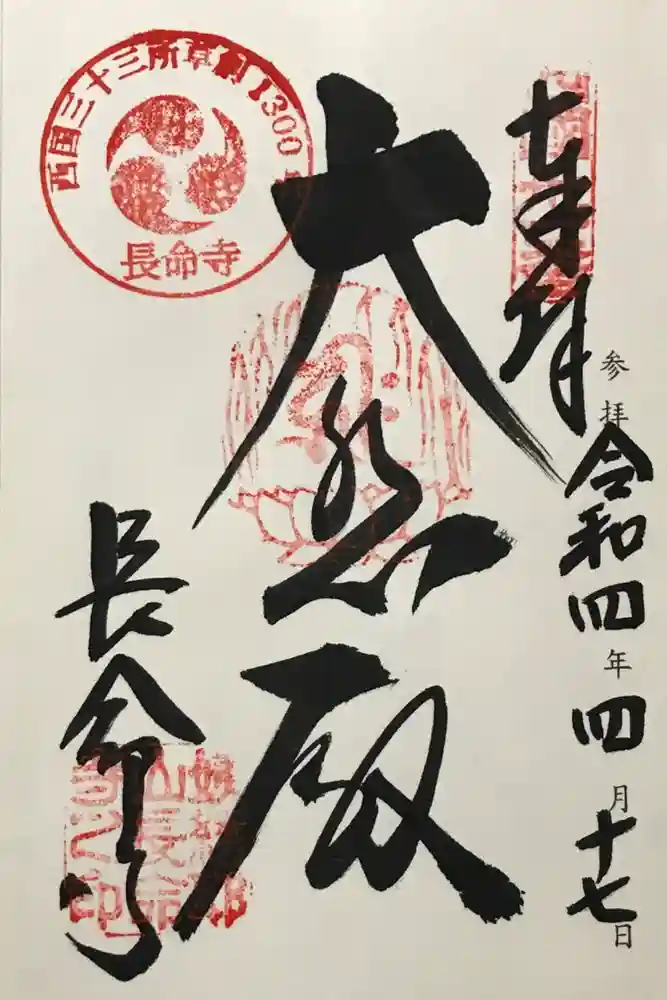 奉拝
参拝 令和四年四月十七日
大悲殿
長命寺
西国三十三所草創1300年
長命寺